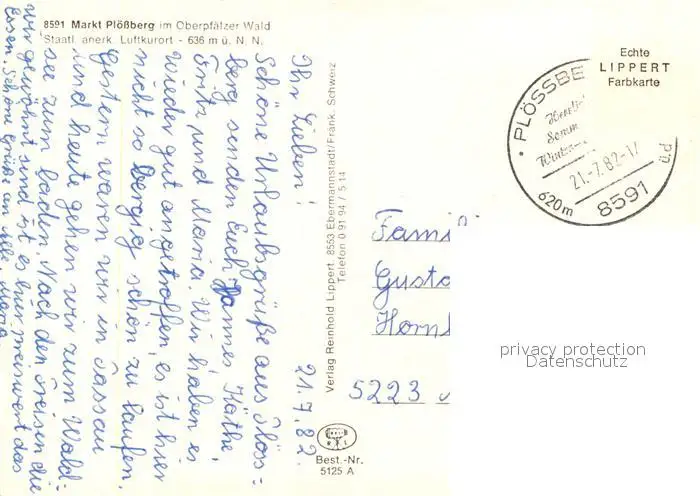 8591 Markt Plößberg im Oberpfälzer Wald
Staatl. anerk. Luftkurort - 636 m ü. N. N.
21.7.82.
Ihr Lieben!
Schöne Urlaubsgrüße aus Plös-
berg senden Euch Hannes Käthe,
Fritz und Maria. Wir haben es
wieder gut angetroffen, es ist hier
nicht so bergig schön zu laufen.
Gestern waren wir in Passau
und heute gehen wir zum Wald-
see zum baden. Nach den Preisen die
wir gewöhnt sind ist es hier preiswert das
Essen. Schöne Grüße an alle. Maria
Verlag Reinhold Lippert, 8553 Ebermannstadt/Fränk. Schweiz
Telefon 0 91 94 / 5 14
Best.-Nr.
5125 A
Echte
LIPPERT
Farbkarte
PLÖSSBE
21.-7.82-17
620m 8591
Fami
Gusta
Horn
5223
privacy protection
Datenschutz